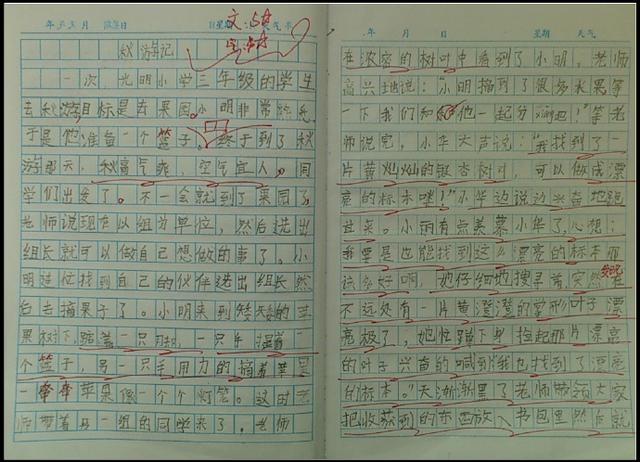 秋游记
一次,光明小学三年级的学生
去秋游目标是去果园。小明非常
于是他准备一个篮子。终于到了秋
游那天,秋高气爽,空气宜人,同
学们出发了。不一会就到了果园了,
老师说现在以组为单位,然后选出
组长就可以做自己想做的事了。小
明赶忙找到自己的伙伴选出组长然
后去摘果子了。小明来到矮矮的苹
果树下,踮着一只脚,一只手
个篮子,另一只手用力的摘着苹果
一 苹果像一个个灯笼。这时老
师带着另一组的同学来了。老师
在浓密的树叶中看到了小明,老师
高兴地说:“小明摘到了很多水果等
一下我们和他一起分 吧!”等老
师说完,小华大声说:“我找到了一
片黄灿灿的银杏树叶,可以做成漂
亮的标本喽!”小华边说边兴奋地跑
过来。小丽有点羡慕小华了,心想:
我要是也能找到这么漂亮的标本
该多好啊。她仔细地搜寻着,突然
发现
不远处有一片黄澄澄的掌形叶子漂
亮极了,她忙蹲下身捡起那片漂亮
的叶子兴奋的喊到“我也找到了漂亮
的标本。”天渐渐黑了老师带领大家
把收获到的东西放入书包里然后就